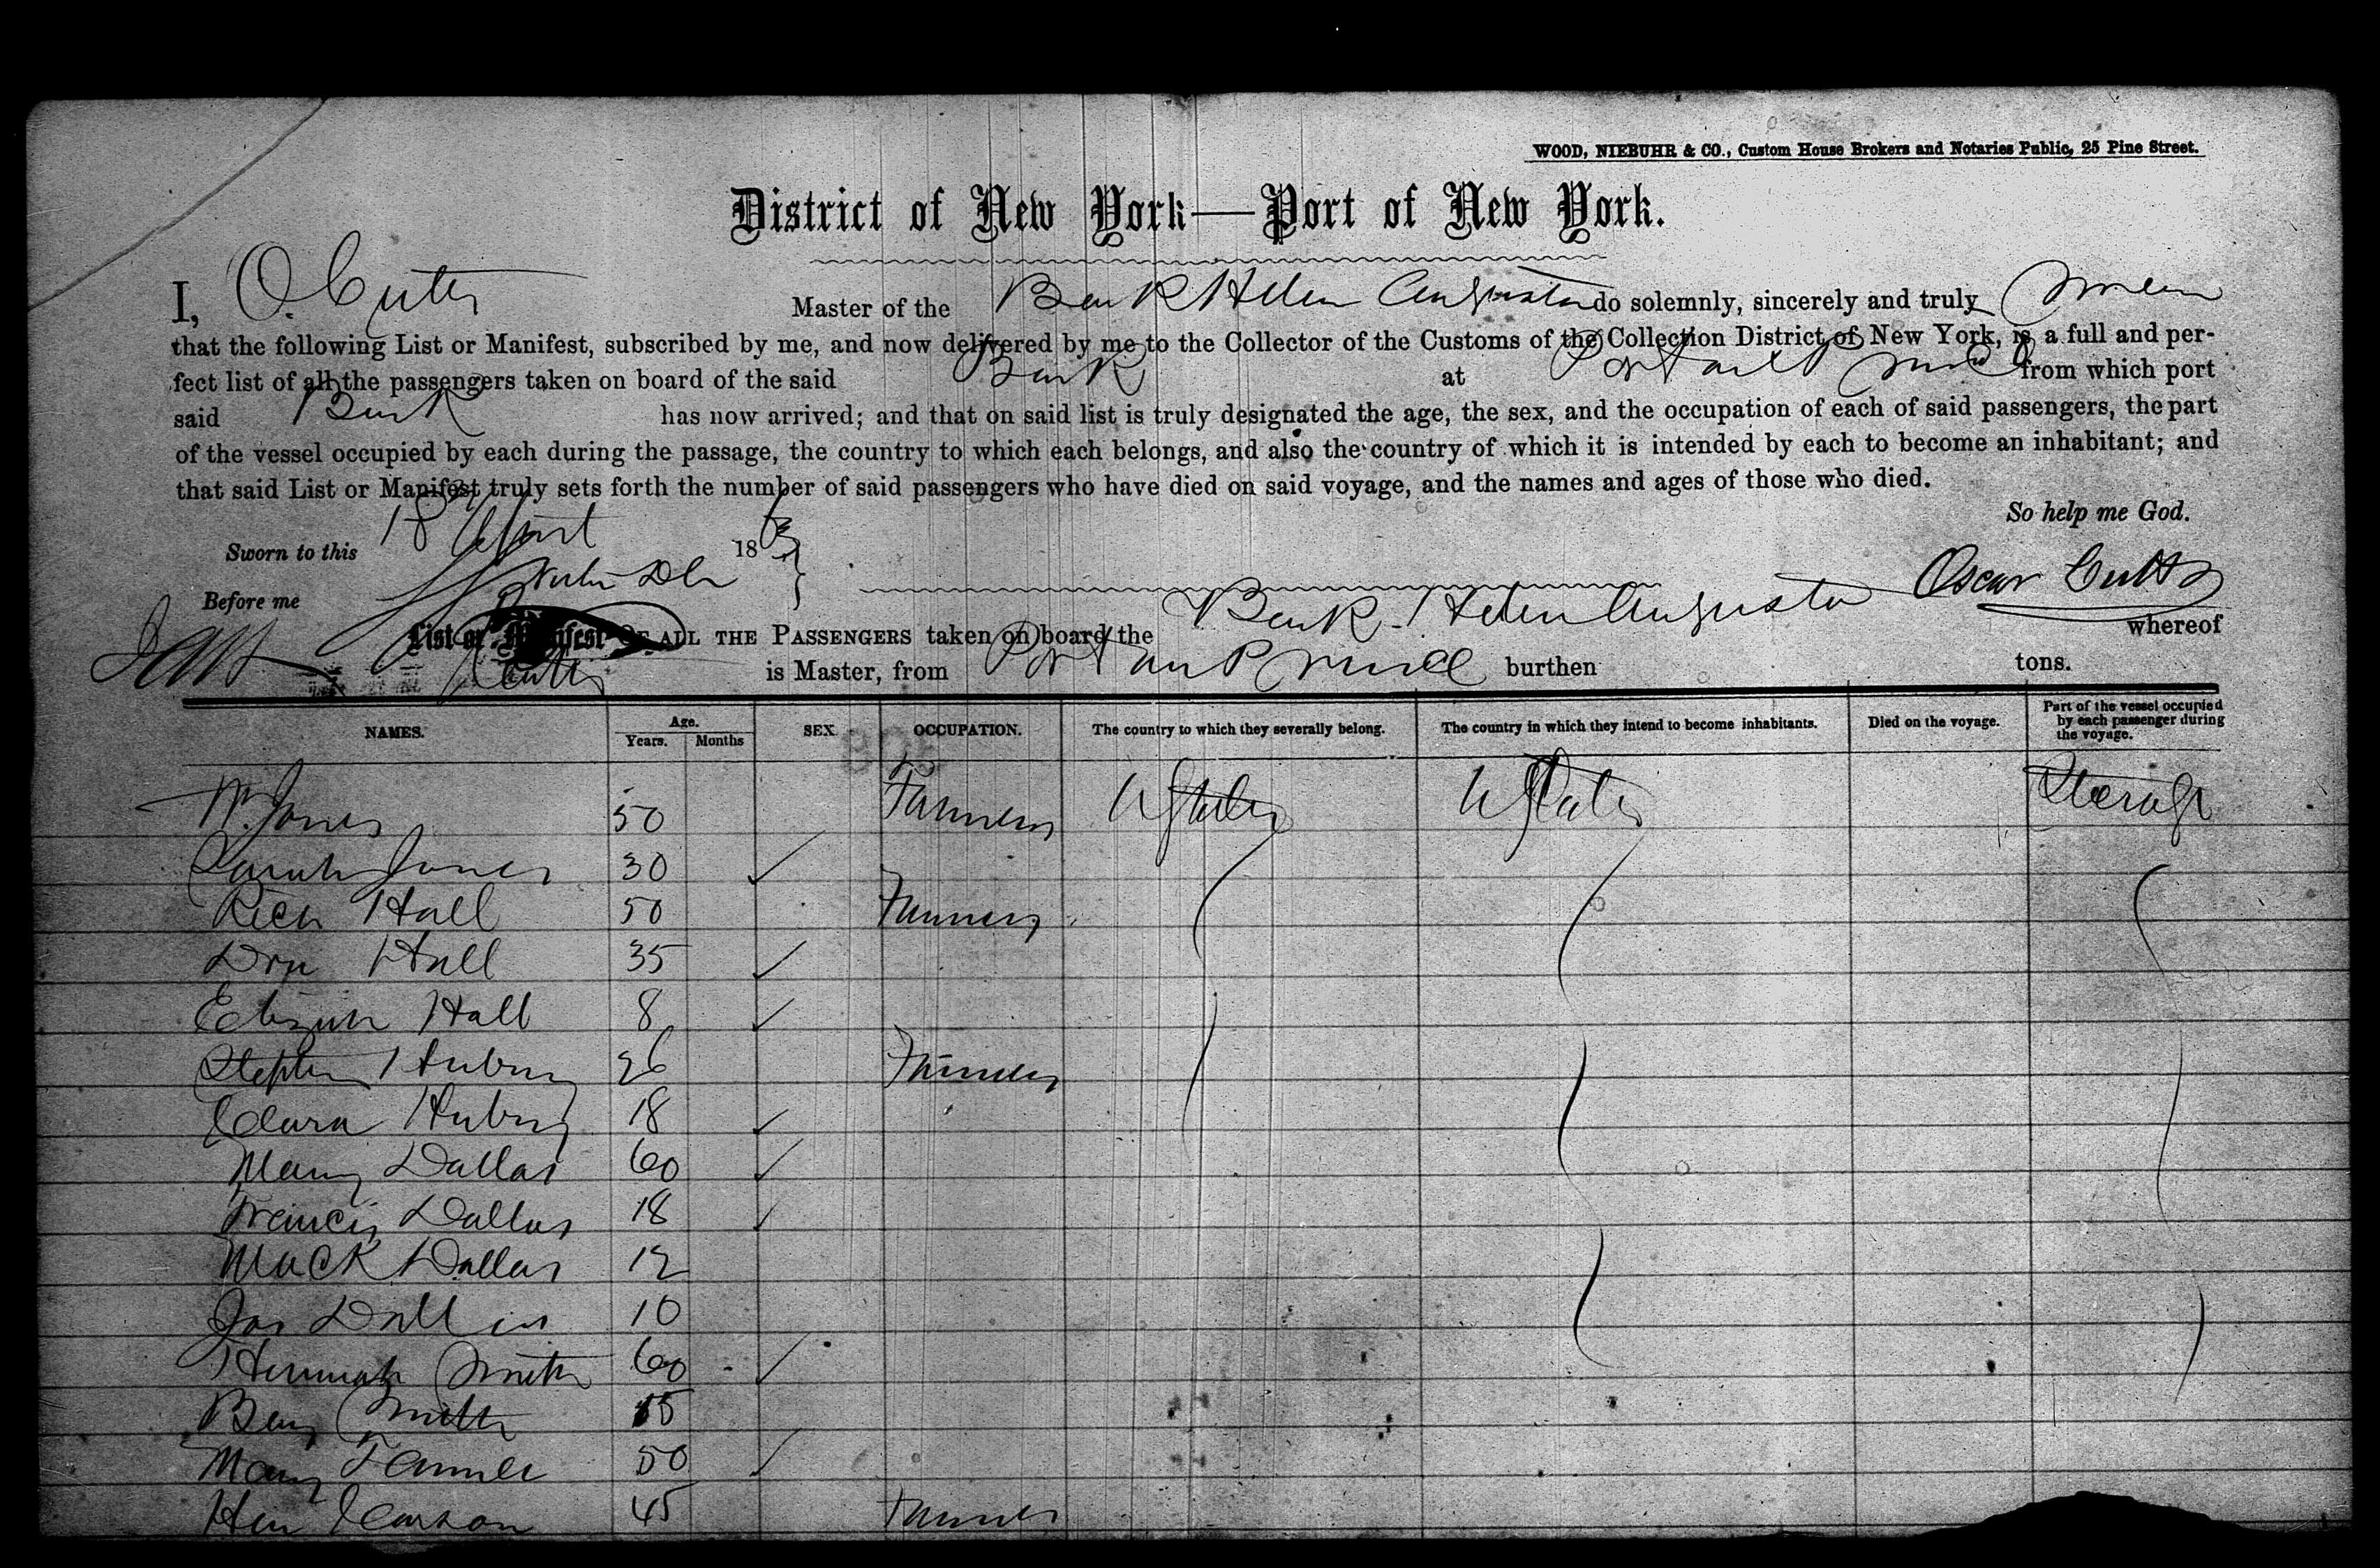 WOOD, NIEBUHR & CO., Custom House Brokers and Notaries Public, 25 Pine Street.
District of New York—Port of New York.
I, O. Cutts Master of the Bark Helen Augusta do solemnly, sincerely and truly Swear
that the following List or Manifest, subscribed by me, and now delivered by me to the Collector of the Customs of the Collection District of New York, is a full and per-
fect list of all the passengers taken on board of the said Bark at Port au Prince from which port
said Bark has now arrived; and that on said list is truly designated the age, the sex, and the occupation of each of said passengers, the part
of the vessel occupied by each during the passage, the country to which each belongs, and also the country of which it is intended by each to become an inhabitant; and
that said List or Manifest truly sets forth the number of said passengers who have died on said voyage, and the names and ages of those who died.
So help me God.
Sworn to this 18 April 1863
Before me
Oscar Cutts
List or Manifest OF ALL THE PASSENGERS taken on board the Bark Helen Augusta whereof
Cutts is Master, from Port au Prince burthen tons.
NAMES. Age. Years. Months SEX. OCCUPATION. The country to which they severally belong. The country in which they intend to become inhabitants. Died on the voyage. Part of the vessel occupied by each passenger during the voyage.
Wm Jones 50 Farmer U States U States Steerage
Sarah Jones 30 ✓
Rich Hall 50 Farmer
Hall 35 ✓
Hall 8 ✓
Stephen 26 Farmer
Clara 18 ✓
Mary Dallas 60 ✓
Francis Dallas 18 ✓
Mack Dallas 12
Jas Dallas 10
Hannah Smith 60 ✓
Benj Smith 15
Mary 50 ✓
Hen Carson 45 Farmer